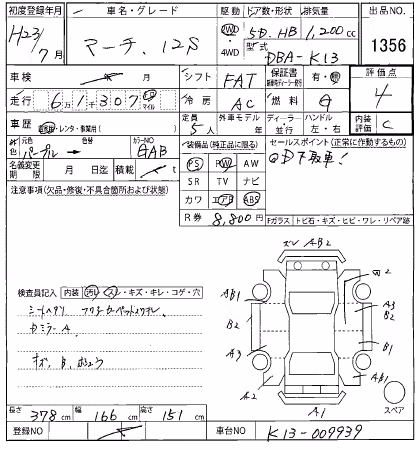 初度登録年月 車名・グレード 駆動 ドア数・形状 排気量 出品NO.
H23/7月 マーチ、12S 2WD 4WD 5D. HB 1,200cc 1356
型式 DBA-K13
車検 年 月 シフト FAT 保証書 有・無 評価点
走行 6万1千307 マイル 冷房 AC 燃料 G 4
車歴 自家用・レンタ・事業用( ) 定員 5人 改車マイル ディーラー 並行 ハンドル 左・右 内装評価 C
色 元色 パープル 色替 カラーNO GAB 装備品(純正品に限る) セールスポイント(正常に動作するもの)
PS PW AW 下取車!
名義変更期限 月 日迄 積載 t SR TV ナビ
注意事項(欠品・修復・不具合箇所および状態) カワ エアB ABS
R券 8,800円 Fガラス トビ石・キズ・ヒビ・ワレ・リペア跡
ズレ AB2
検査員記入 内装 汚れ・スレ・キズ・キレ・コゲ・穴
AB1 A3
B2 B2
シートヘタリ フロアカーペット
カミラーA
A3 B1
キズ、B、
A2 AB1
A1
スペア
長さ 378cm 幅 166cm 高さ 151cm
登録NO 車台NO K13-009939